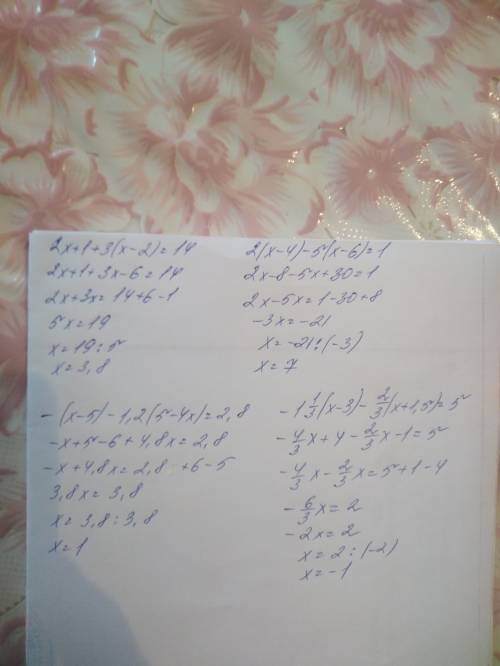 2x+1+3(x-2)=14
2x+1+3x-6=14
2x+3x=14+6-1
5x=19
x=19:5
x=3,8
2(x-4)-5(x-6)=1
2x-8-5x+30=1
2x-5x=1-30+8
-3x=-21
x=-21:(-3)
x=7
-(x-5)-1,2(5-4x)=2,8
-x+5-6+4,8x=2,8
-x+4,8x=2,8 +6-5
3,8x=3,8
x=3,8:3,8
x=1
-1 1/3(x-3)-2/3(x+1,5)=5
-4/3x+4-2/3x-1=5
-4/3x-2/3x=5+1-4
-6/3x=2
-2x=2
x=2:(-2)
x=-1